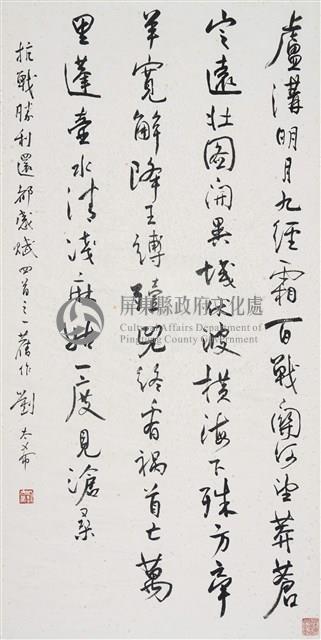 盧溝明月九經霜百戰關河望莽蒼
定遠壯圖開異域伏波橫海下殊方牽
羊寬解降王縛殪兕終看禍首亡萬
里蓬壺水清淺麻姑一度見滄桑
抗戰勝利還都感賦四首之一舊作 劉太希
屏東縣政府文化處
Cultural Affairs Department of
Pingtung County Government